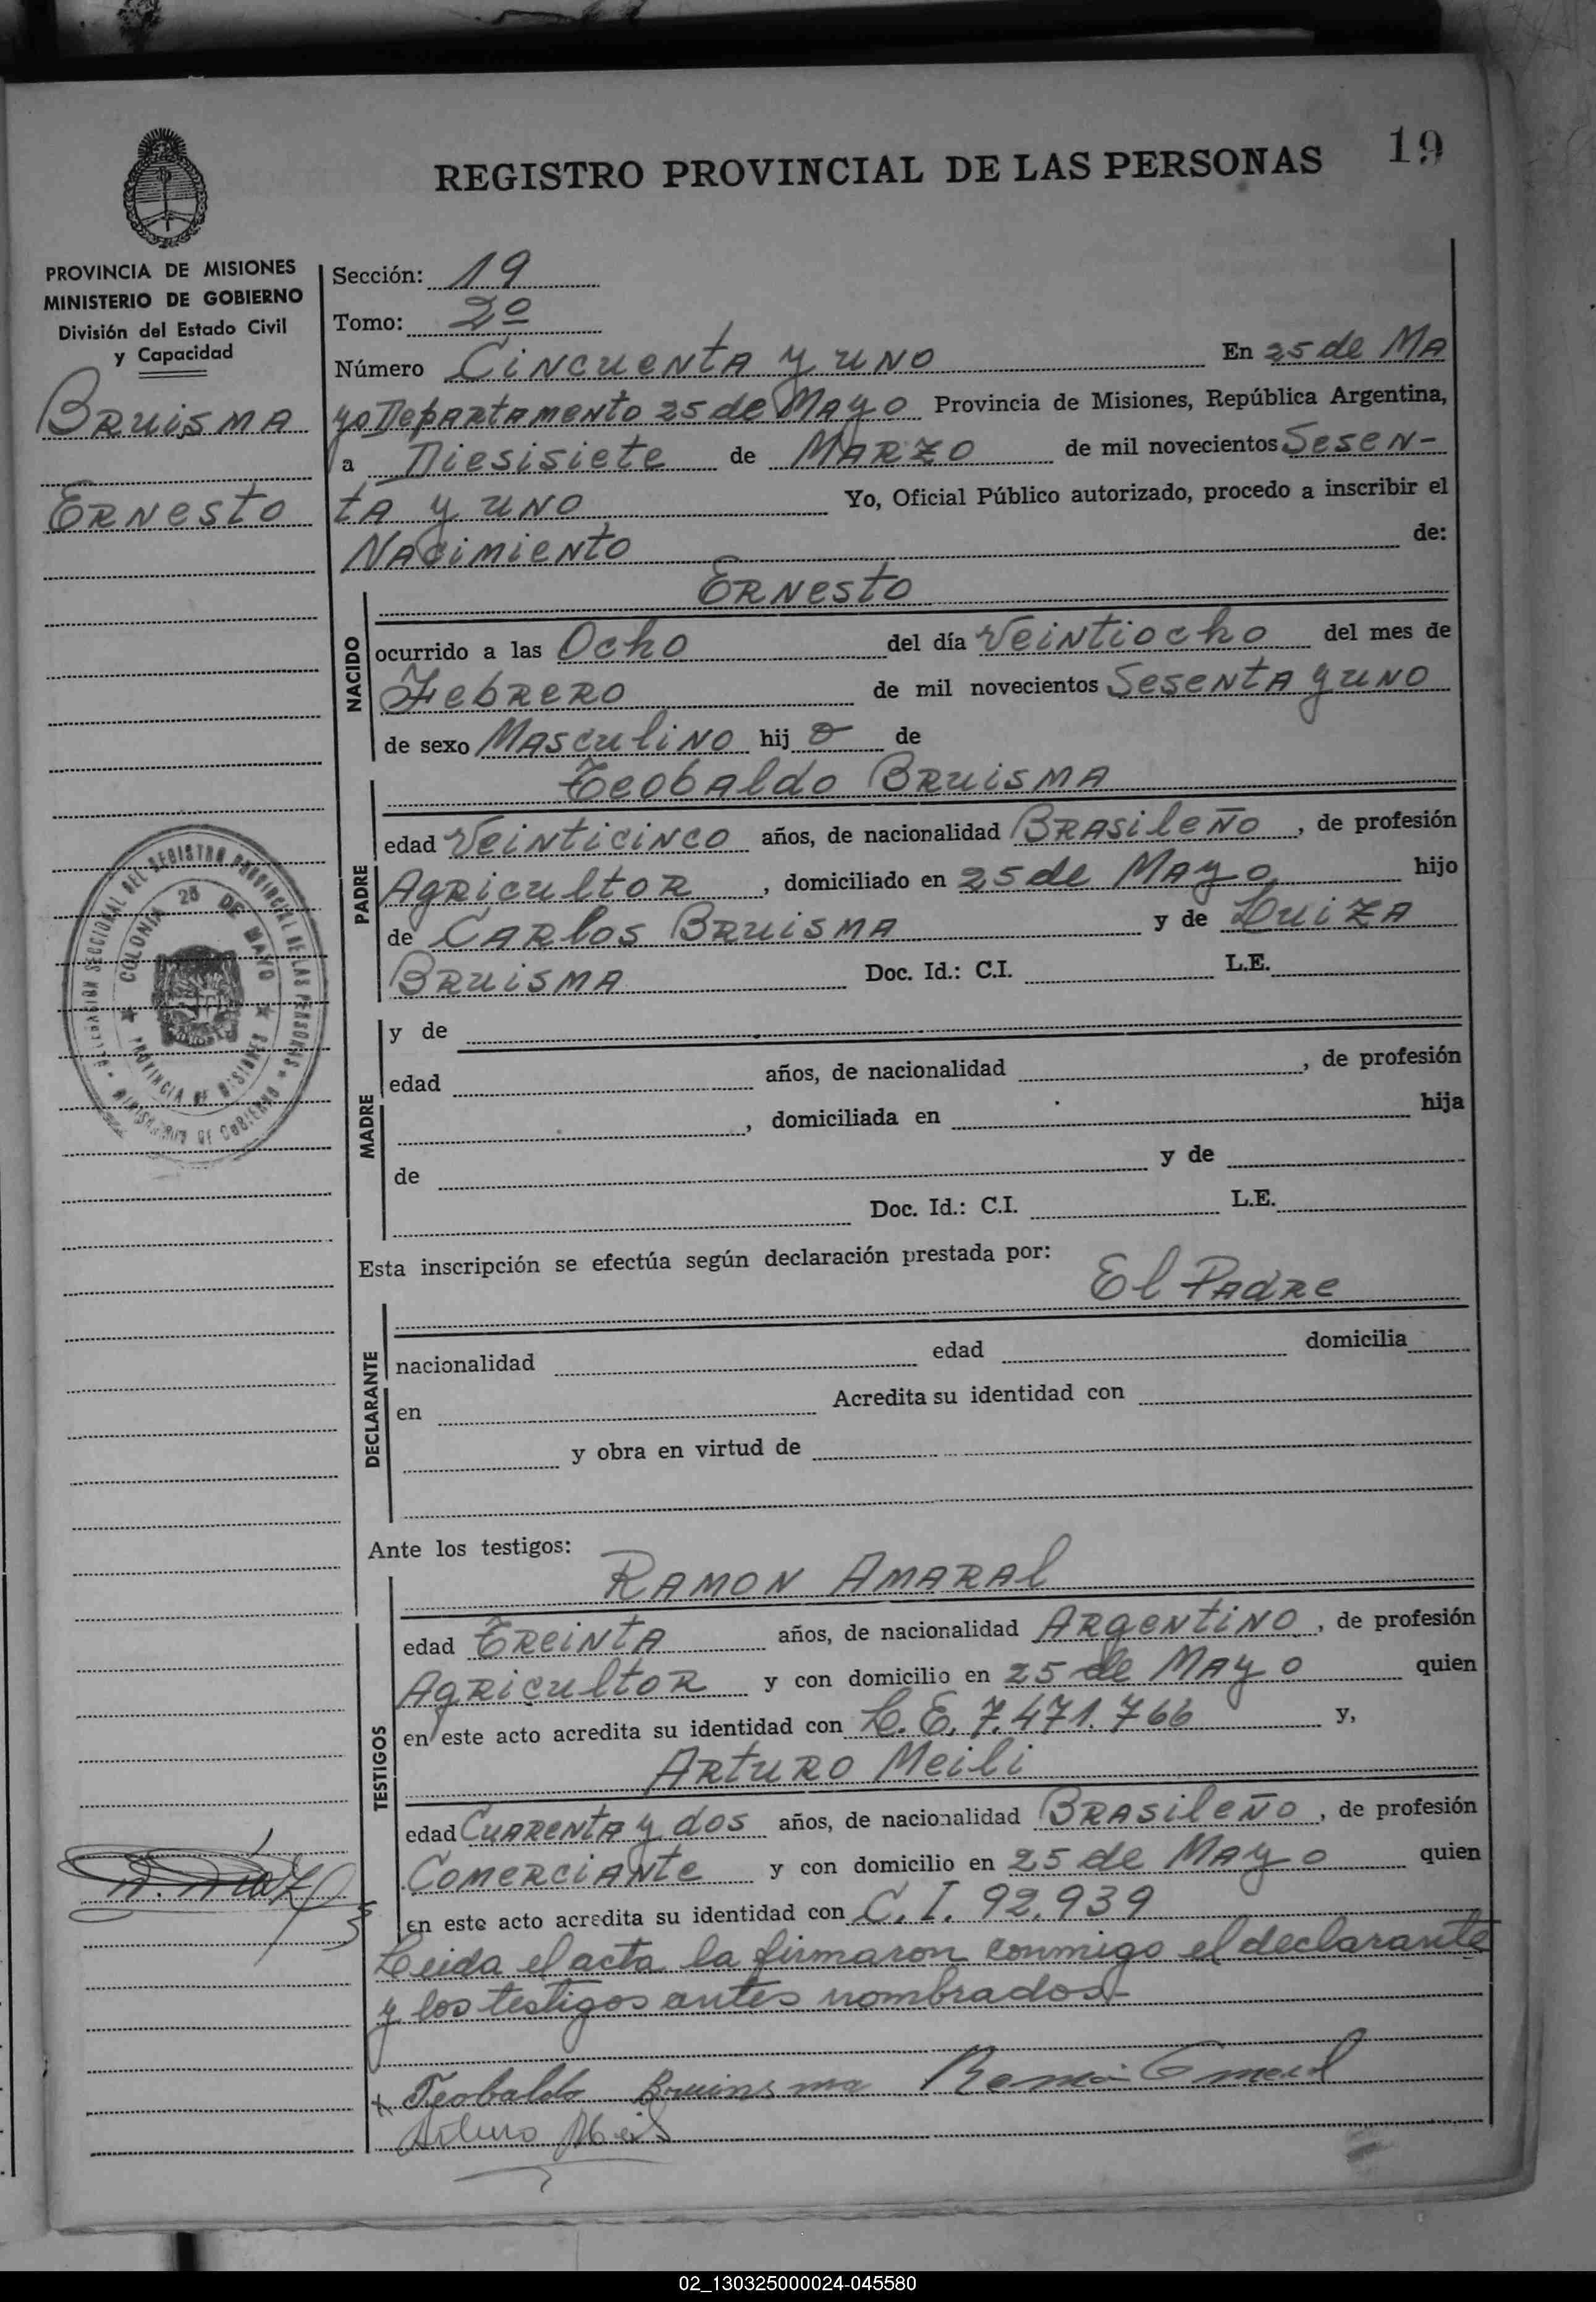 19
REGISTRO PROVINCIAL DE LAS PERSONAS
PROVINCIA DE MISIONES
MINISTERIO DE GOBIERNO
División del Estado Civil
y Capacidad
Bruisma
Ernesto
DELEGACION SECCIONAL DEL REGISTRO PROVINCIAL DE LAS PERSONAS
COLONIA 25 DE MAYO
PROVINCIA DE MISIONES
MINISTERIO DE GOBIERNO
Sección: 19
Tomo: 2º
Número Cincuenta y uno En 25 de Ma
yo Departamento 25 de Mayo Provincia de Misiones, República Argentina,
a Diesisiete de Marzo de mil novecientos Sesen-
ta y uno Yo, Oficial Público autorizado, procedo a inscribir el
Nacimiento de:
Ernesto
NACIDO
ocurrido a las Ocho del día Veintiocho del mes de
Febrero de mil novecientos Sesenta y uno
de sexo Masculino hij o de
Teobaldo Bruisma
PADRE
edad Veinticinco años, de nacionalidad Brasileño, de profesión
Agricultor, domiciliado en 25 de Mayo hijo
de Carlos Bruisma y de Luiza
Bruisma Doc. Id.: C.I. L.E.
MADRE
y de
edad años, de nacionalidad , de profesión
, domiciliada en hija
de y de
Doc. Id.: C.I. L.E.
Esta inscripción se efectúa según declaración prestada por:
El Padre
DECLARANTE
nacionalidad edad domicilia
en Acredita su identidad con
y obra en virtud de
Ante los testigos:
Ramon Amaral
TESTIGOS
edad Treinta años, de nacionalidad Argentino, de profesión
Agricultor y con domicilio en 25 de Mayo quien
en este acto acredita su identidad con L.E. 7.471.766 y,
Arturo Meili
edad Cuarenta y dos años, de nacionalidad Brasileño, de profesión
Comerciante y con domicilio en 25 de Mayo quien
en este acto acredita su identidad con C.I. 92.939
Leida el acta la firmaron conmigo el declarante
y los testigos antes nombrados-
x Teobaldo Bruinsma
Arturo Meili
02_130325000024-045580